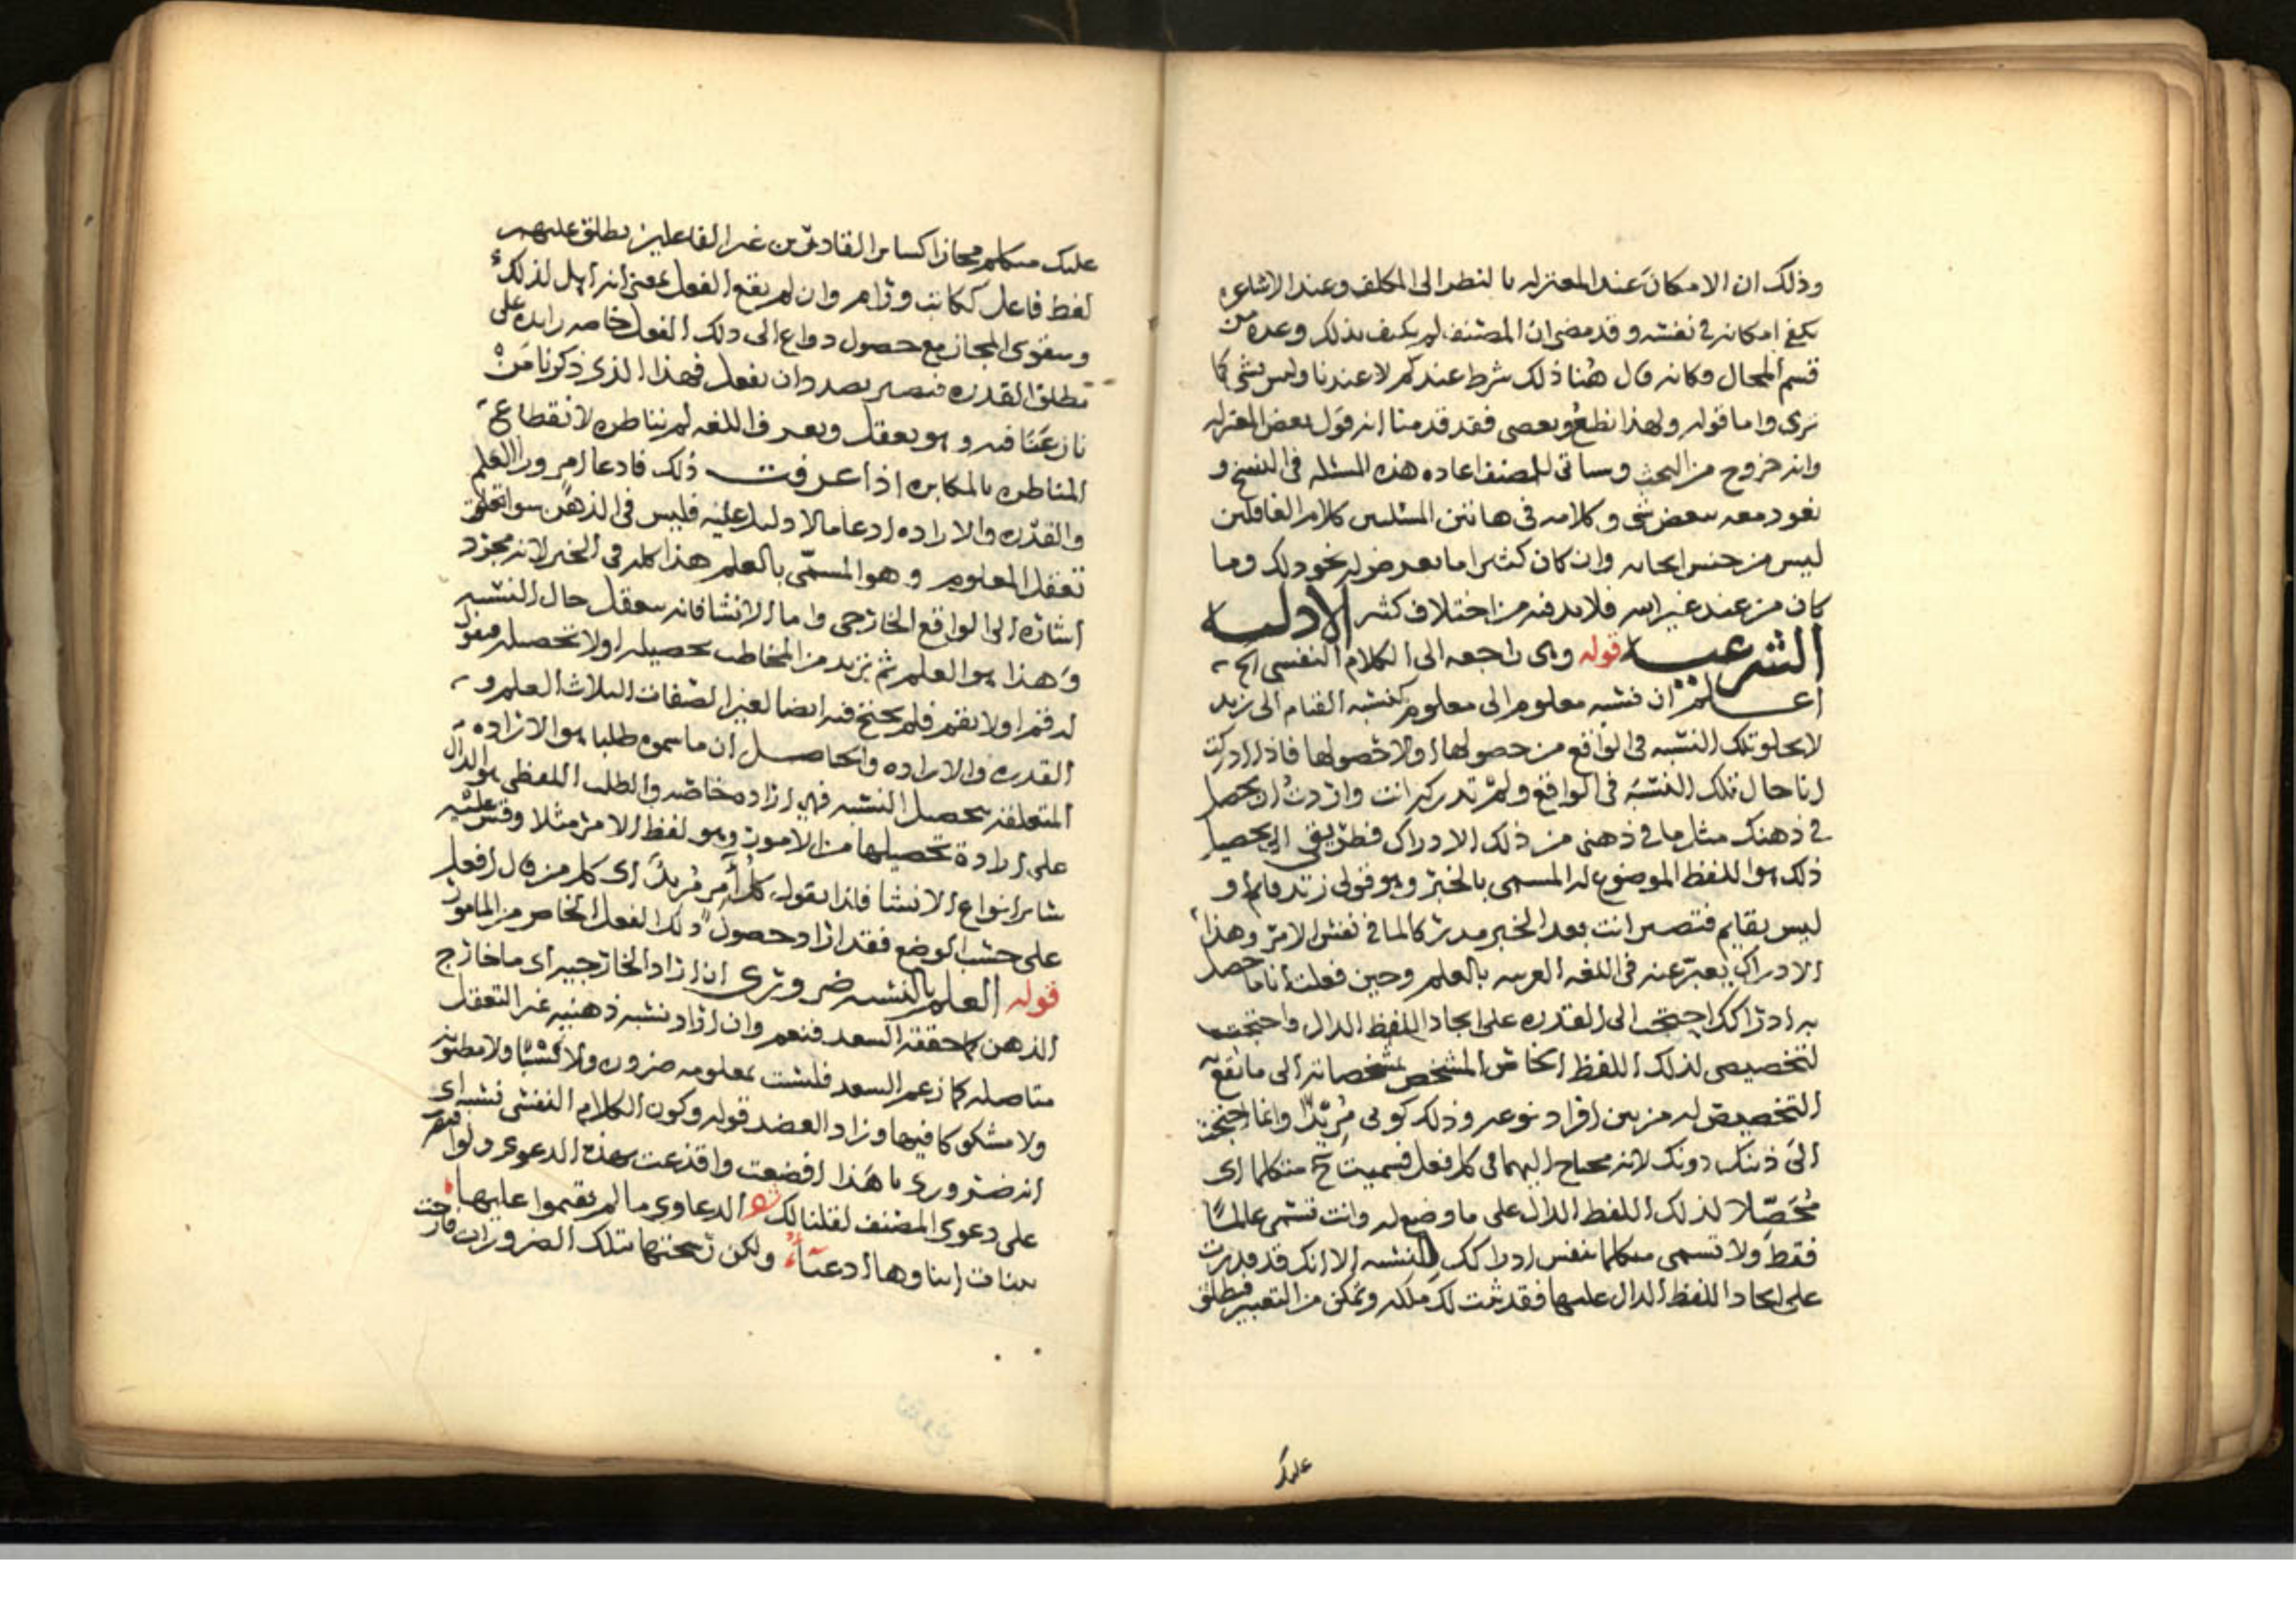 وذلك ان الامكان عند المعتزله بالنظر الى المكلف وعند الاشاعره
يكفي امكانه في نفسه وقد مضى ان المصنف لم يكتف بذلك وعده من
قسم المحال وكانه قال هنا ذلك شرط عندكم لا عندنا وليس بشي كما
ترى واما قوله ولهذا نطع ويعصى فقد قدمنا انه قول بعض المعتزله
وانه خروج من البحث وسياتي للمصنف اعاده هذه المسئله في النسخ و
نعود معه ببعض شي وكلامه في هاتين المسئلتين كلام الغافلين
ليس من جنس ابحاثه وان كان كثيرا ما يعرض له نحو ذلك وما
كان من عند غير الله فلا بد فيه من اختلاف كثير الادله
الشرعيه قوله وهي راجعه الى الكلام النفسي الخ
اعلم ان نسبه معلوم الى معلوم كنسبه القيام الى زيد
لا يخلو تلك النسبه في الواقع من حصولها او لا حصولها فاذا ادركت
انا حال تلك النسبه في الواقع ولم تدركه انت واردت ان يحصل
في ذهنك مثل ما في ذهني من ذلك الادراك فطريقي الى تحصيل
ذلك هو اللفظ الموضوع له المسمى بالخبر وهو قولي زيد قايم او
ليس بقايم فتصير انت بعد الخبر مدركا لما في نفس الامر وهذا
الادراك يعبر عنه في اللغه العربيه بالعلم وحين فعلت انا ما حصل
به ادراكك احتجت الى القدره على ايجاد اللفظ الدال واحتجت
لتخصيصي لذلك اللفظ الخاص المشخص بمشخصاته الى ما يقع
التخصيص له من بين افراد نوعه وذلك كوني مريدا وانما احتجت
الى ذينك دونك لانه محتاج اليهما في كل فعل فسميت ح متكلما اى
محصلا لذلك اللفظ الدال على ما وضع له وانت تسمى عالما
فقط ولا تسمى متكلما بنفس ادراكك النسبه الا انك قد قدرت
على ايجاد اللفظ الدال عليها فقد ثبت لك ملكه وتمكن من التعبير فيطلق
عليك
عليك متكلم مجازا كساير القادرين من غير الفاعلين يطلق عليهم
لفظ فاعل ككاتب ورام وان لم يقع الفعل بمعنى انه اهل لذلك
وسقوى المجاز مع حصول دواع الى ذلك الفعل خاصه زايده على
مطلق القدره فيصير بصدد ان يفعل فهذا الذي ذكرنا من
نازعنا فيه وهو يعقل ويعرف اللغه لم نناظره لانقطاع
المناظره بالمكابره اذا عرفت ذلك فادعا امر ورا العلم
والقدره والاراده ادعا ما لا دليل عليه فليس في الذهن سوا تعلق
تعقل المعلوم وهو المسمى بالعلم هذا كله في الخبر لانه مجرد
اشاره الى الواقع الخارجي واما الانشا فانه يتعقل حال النسبه
وهذا هو العلم ثم يريد من المخاطب تحصيله او لا تحصيله فيقول
له قم او لا تقم فلم يحتج فيه ايضا لغير الصفات الثلاث العلم و
القدره والاراده والحاصل ان ما سموه طلبا هو الاراده
المتعلقه بتحصيل النسبه فهي اراده خاصه والطلب اللفظي هو الدال
على ارادة تحصيلها من الامور وهو لفظ الامر مثلا وقس عليه
سائر انواع الانشا فلذا يقول كل آمر مريد اى كل من قال افعل
على حسب الوضع فقد اراد حصول ذلك الفعل الخاص من المامور
قوله العلم بالنسبه ضروري ان اراد الخارجيه اى ما خارج
الذهن كما حققه السعد فنعم وان اراد نسبه ذهنيه غير التعقل
متاصله كما زعم السعد فليست بمعلومه ضروره ولا كسبا ولا مظنونه
ولا مشكوكا فيها وزاد العضد قوله وكون الكلام النفسي نسبه اى
انه ضروري يا هذا افضعت واقذعت بهذه الدعوى ولو اقتصر
على دعوى المصنف لقلنا لك الدعاوي ما لم يقيموا عليها
بينات ابناوها ادعيآء ولكن تسحبها بتلك الضرورات فارحت